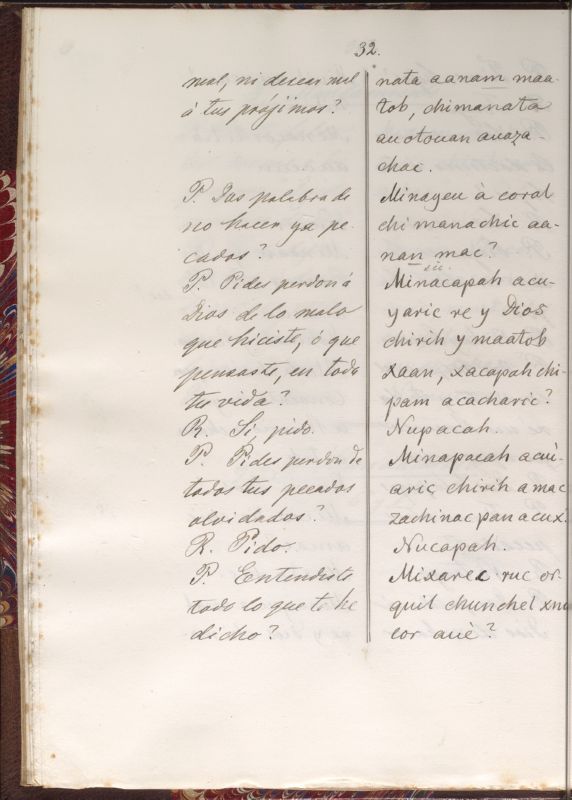 32.
mal, ni desear mal
á tus projimos?
P. Das palabra de
no hacer ya pe-
cados?
P. Pides perdon á
Dios de lo malo
que hiciste, ó que
pensaste, en toda
tu vida?
R. Si, pido.
P. Pides perdon de
todos tus pecados
olvidados?
R. Pido.
P. Entendiste
todo lo que te he
dicho?
nata aanam maa-
tob, chimanata
auotouan auaza-
chac.
Minayeu á coral
chi manachic aa-
nan mac?
Minacapah acu-
yaric re y Dios
chirih y maatob
xaan, xacapah chi-
pam acacharic?
Nupacah.
Minapacah acui-
aric chirih a mac
zachinac pan acux.
Nucapah.
Mixarec ruc or-
quil chunchel xnu
cor auè?